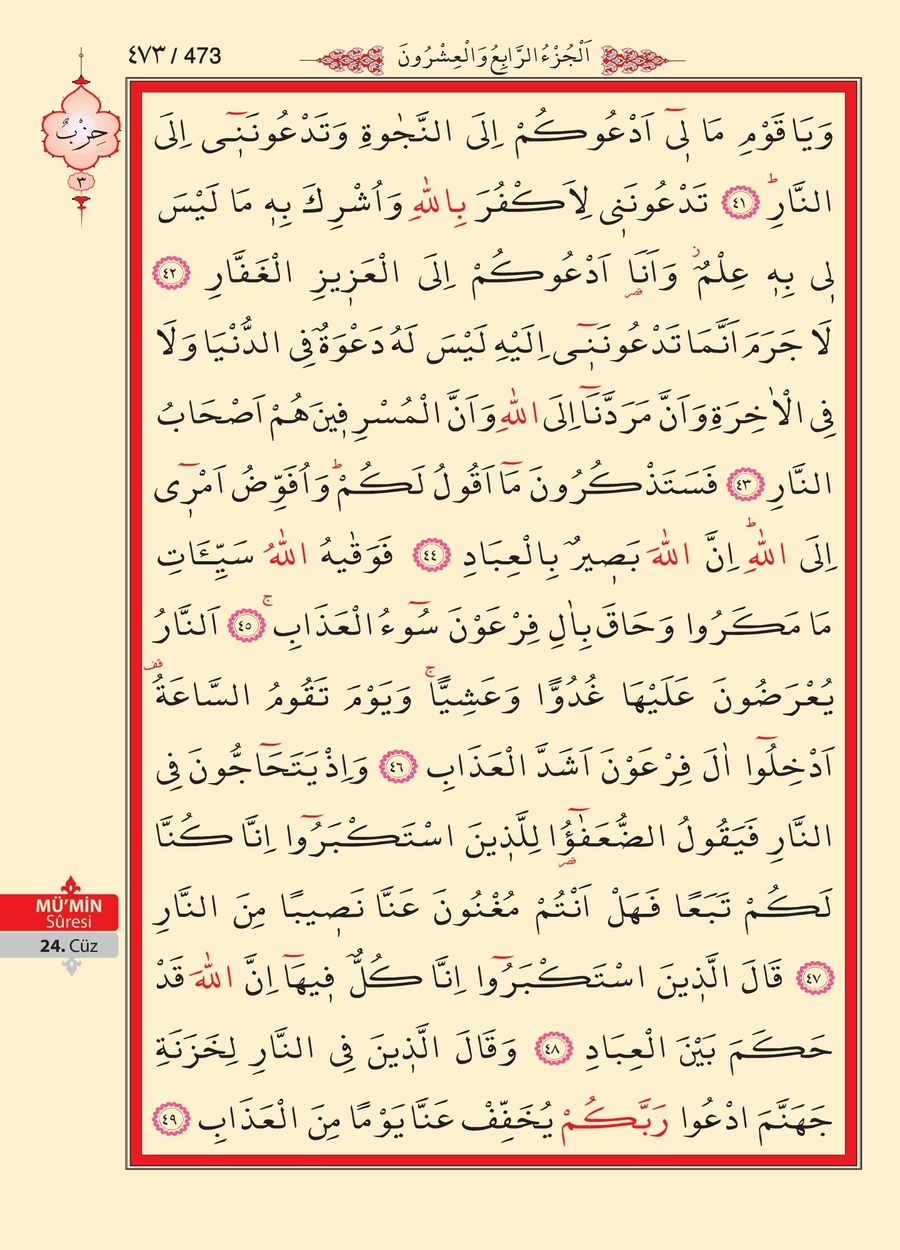 ٤٧٣ / 473
اَلْجُزْءُ الرَّابِعُ وَالْعِشْرُونَ
حِزْبٌ
٣
وَيَا قَوْمِ مَا لِىٓ اَدْعُوكُمْ اِلَى النَّجٰوةِ وَتَدْعُونَنِىٓ اِلَى
النَّارِۜ ﴿٤١﴾ تَدْعُونَنِى لِاَكْفُرَ بِاللّٰهِ وَاُشْرِكَ بِهٖ مَا لَيْسَ
لِى بِهٖ عِلْمٌۘ وَاَنَا۬ اَدْعُوكُمْ اِلَى الْعَزِيزِ الْغَفَّارِ ﴿٤٢﴾
لَا جَرَمَ اَنَّمَا تَدْعُونَنِىٓ اِلَيْهِ لَيْسَ لَهُ دَعْوَةٌ فِى الدُّنْيَا وَلَا
فِى الْاٰخِرَةِ وَاَنَّ مَرَدَّنَٓا اِلَى اللّٰهِ وَاَنَّ الْمُسْرِفِينَ هُمْ اَصْحَابُ
النَّارِ ﴿٤٣﴾ فَسَتَذْكُرُونَ مَٓا اَقُولُ لَكُمْۜ وَاُفَوِّضُ اَمْرِىٓ
اِلَى اللّٰهِۜ اِنَّ اللّٰهَ بَصِيرٌ بِالْعِبَادِ ﴿٤٤﴾ فَوَقٰيهُ اللّٰهُ سَيِّـَٔاتِ
مَا مَكَرُوا وَحَاقَ بِاٰلِ فِرْعَوْنَ سُٓوءُ الْعَذَابِۚ ﴿٤٥﴾ اَلنَّارُ
يُعْرَضُونَ عَلَيْهَا غُدُوًّا وَعَشِيًّاۚ وَيَوْمَ تَقُومُ السَّاعَةُ قف
اَدْخِلُٓوا اٰلَ فِرْعَوْنَ اَشَدَّ الْعَذَابِ ﴿٤٦﴾ وَاِذْ يَتَحَٓاجُّونَ فِى
النَّارِ فَيَقُولُ الضُّعَفٰٓؤُ۬ا لِلَّذِينَ اسْتَكْبَرُٓوا اِنَّا كُنَّا
لَكُمْ تَبَعًا فَهَلْ اَنْتُمْ مُغْنُونَ عَنَّا نَصِيبًا مِنَ النَّارِ
﴿٤٧﴾ قَالَ الَّذِينَ اسْتَكْبَرُٓوا اِنَّا كُلٌّ فِيهَٓا اِنَّ اللّٰهَ قَدْ
حَكَمَ بَيْنَ الْعِبَادِ ﴿٤٨﴾ وَقَالَ الَّذِينَ فِى النَّارِ لِخَزَنَةِ
جَهَنَّمَ ادْعُوا رَبَّكُمْ يُخَفِّفْ عَنَّا يَوْمًا مِنَ الْعَذَابِ ﴿٤٩﴾
MÜ’MİN
Sûresi
24. Cüz